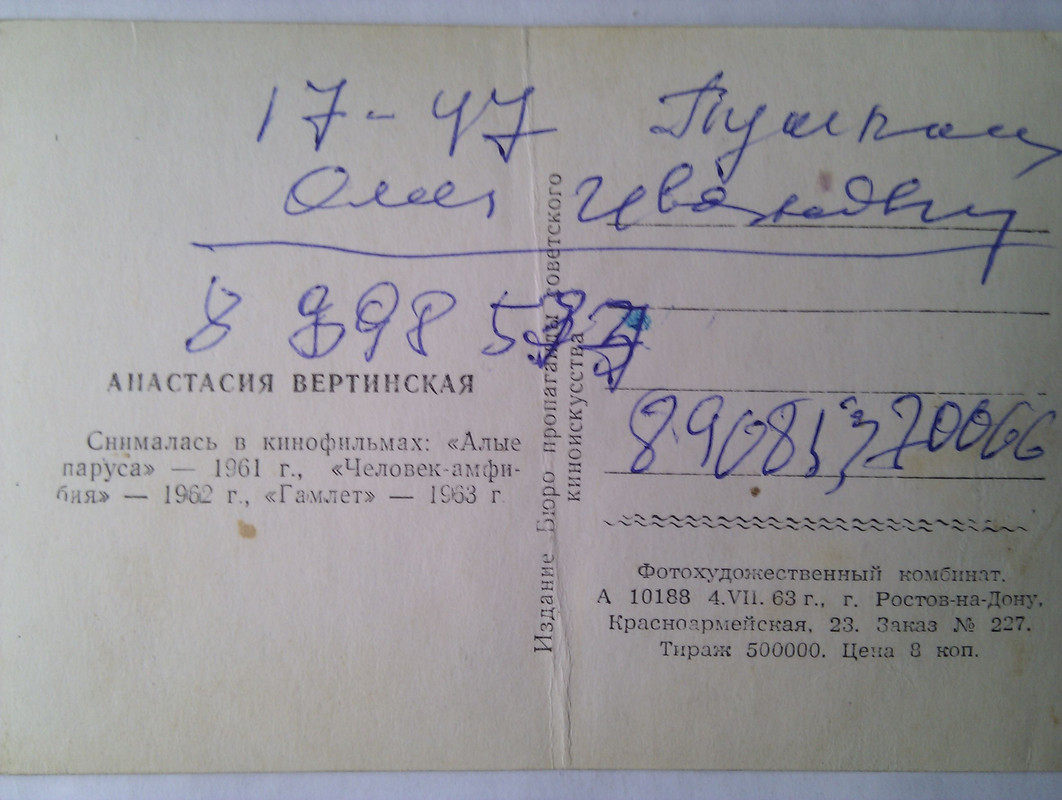 17-47
8 898 53
АНАСТАСИЯ ВЕРТИНСКАЯ
Снималась в кинофильмах: «Алые
паруса» — 1961 г., «Человек-амфи-
бия» — 1962 г., «Гамлет» — 1963 г.
Издание Бюро пропаганды советского
киноискусства
89081370066
Фотохудожественный комбинат.
А 10188 4.VII. 63 г., г. Ростов-на-Дону,
Красноармейская, 23. Заказ № 227.
Тираж 500000. Цена 8 коп.